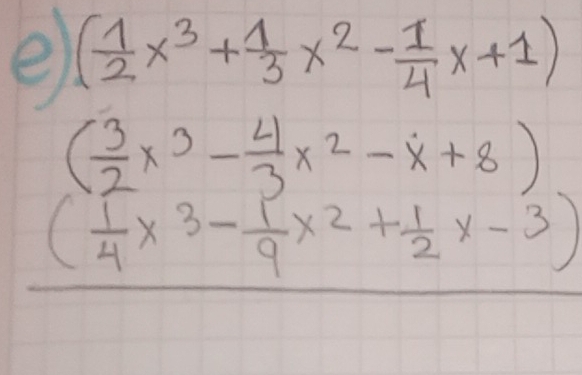 e) (1/2 x³ + 1/3 x² - 1/4 x + 1)
(3/2 x³ - 4/3 x² - x + 8)
(1/4 x³ - 1/9 x² + 1/2 x - 3)